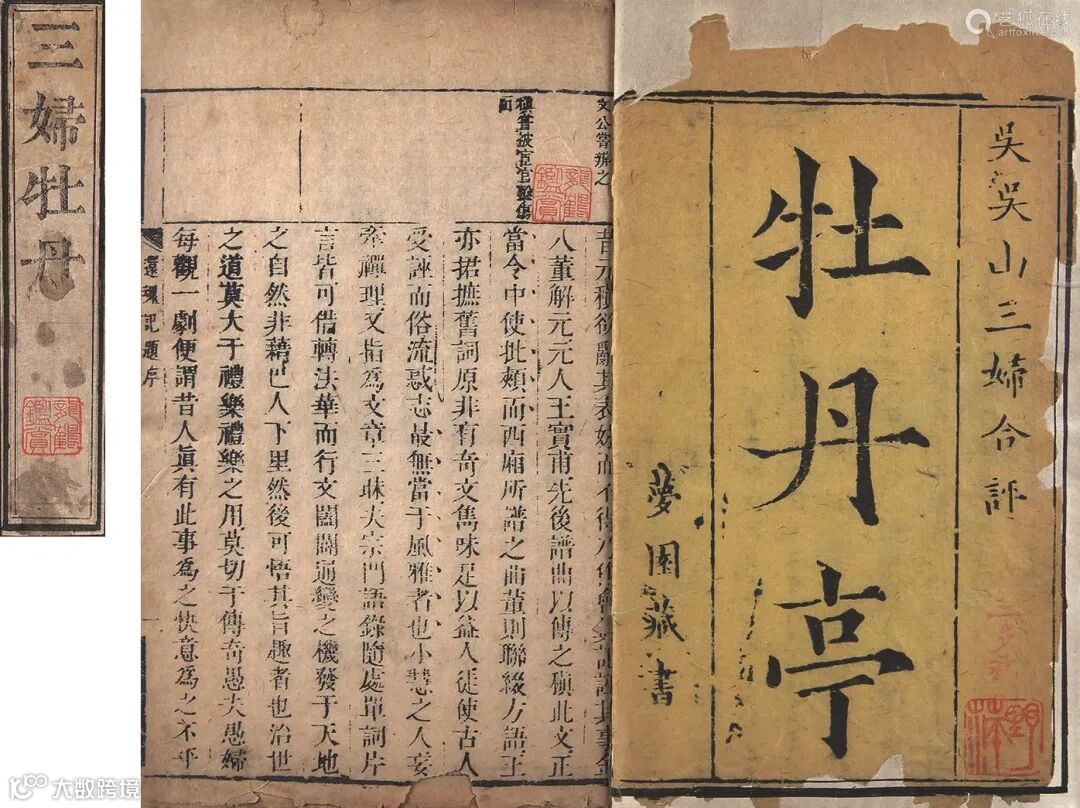 吳吳山三婦合評
牡丹亭
夢園藏書
文公嘗辨之
稹嘗被宦官擊傷
面
昔元稹欲其表妹而不得
人董解元元人王實甫先後譜曲以傳之稹此文正
當令中使批頰而西廂所譜之曲董則聯綴方語王
亦捃摭舊詞原非有奇文雋味足以益人徒使古人
受誣而俗流惑志最無當于風雅者也小慧之人妄
牽禪理又指爲文章三昧夫宗門語錄隨處單詞片
言皆可借轉法華而行文闔闢通變之機發于天地
之自然非藉巴人下里然後可悟其旨趣者也治世
之道莫大于禮樂禮樂之用莫切于傳奇愚夫愚婦
每觀一劇便謂昔人眞有此事爲之快意爲之不平
還魂記題序
一
三婦牡丹
艺狐在线
artfoxlive.com
大数跨境